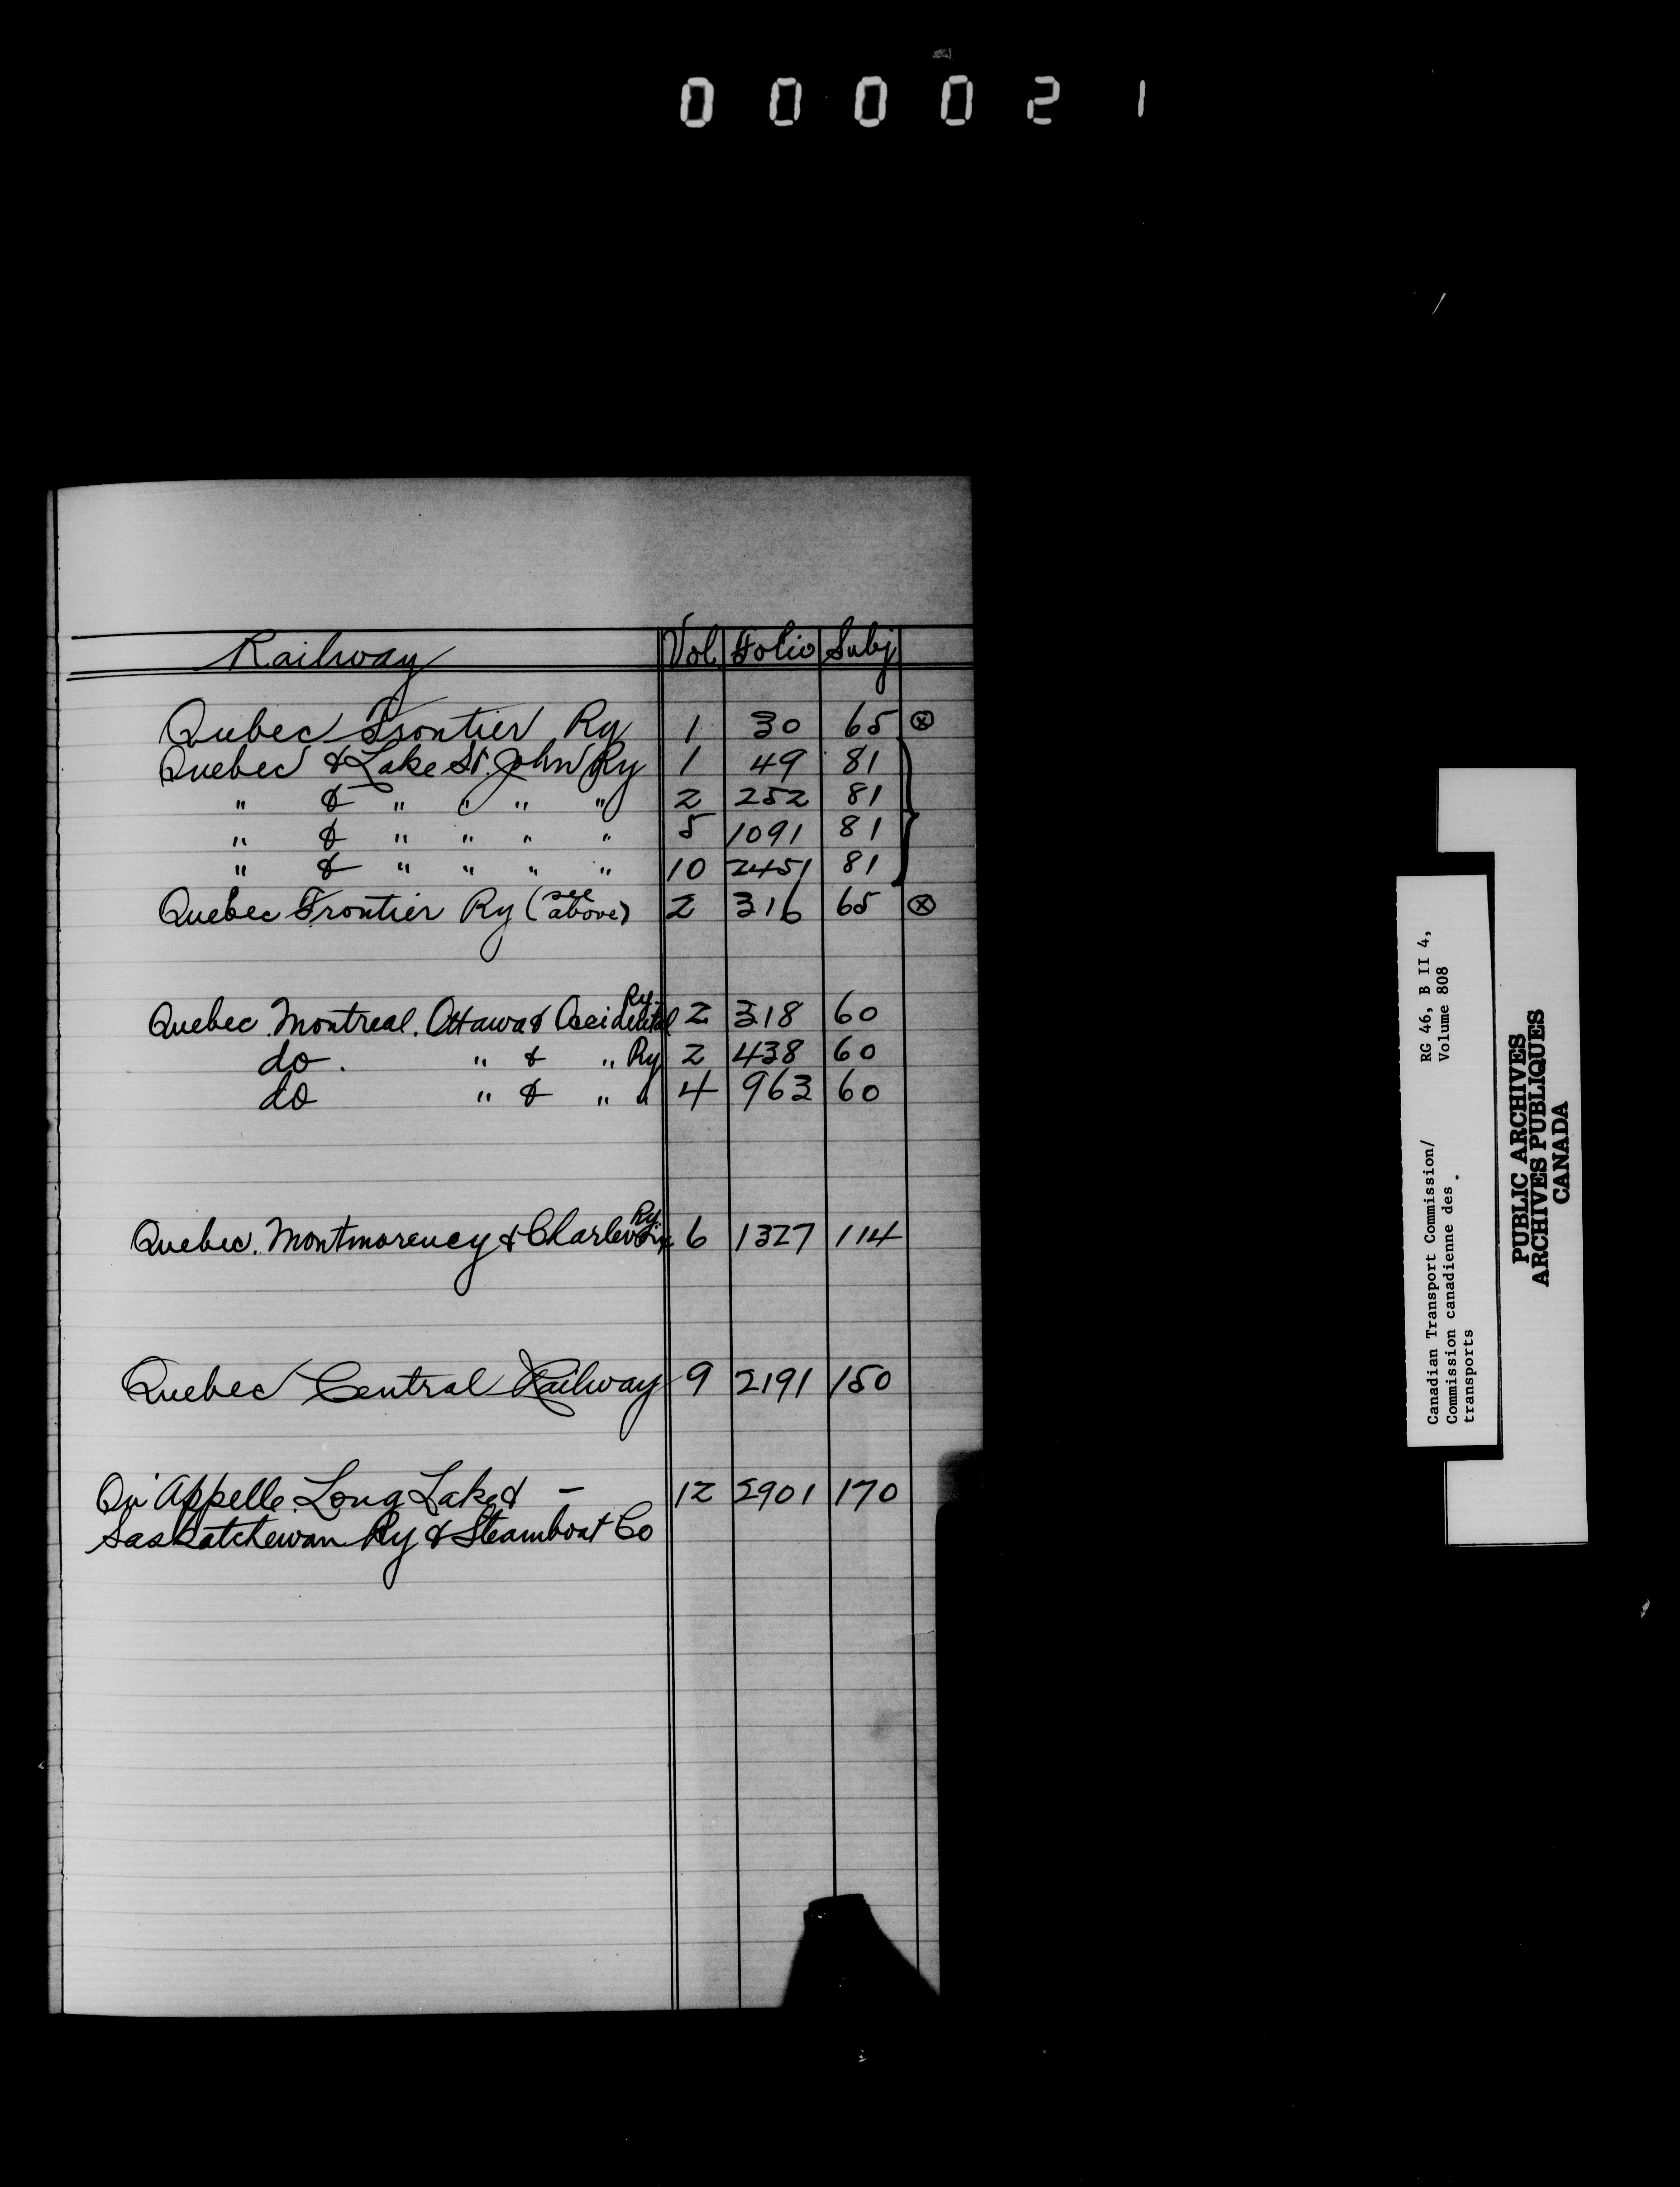 000021
Railway Vol Folio Subj
Qubec Frontier Ry 1 30 65 ⊗
Quebec & Lake St. John Ry 1 49 81
" & " " " " 2 252 81
" & " " " " 5 1091 81
" & " " " " 10 2451 81
Quebec Frontier Ry (see above) 2 316 65 ⊗
Quebec. Montreal. Ottawa & Occidental Ry. 2 318 60
do. " & " Ry 2 438 60
do " & " " 4 963 60
Quebec. Montmorency & Charlevoix Ry. 6 1327 114
Quebec Central Railway 9 2191 150
Qu'Appelle. Long Lake & - 12 2901 170
Saskatchewan Ry & Steamboat Co
Canadian Transport Commission/ RG 46, B II 4,
Commission canadienne des Volume 808
transports
PUBLIC ARCHIVES
ARCHIVES PUBLIQUES
CANADA